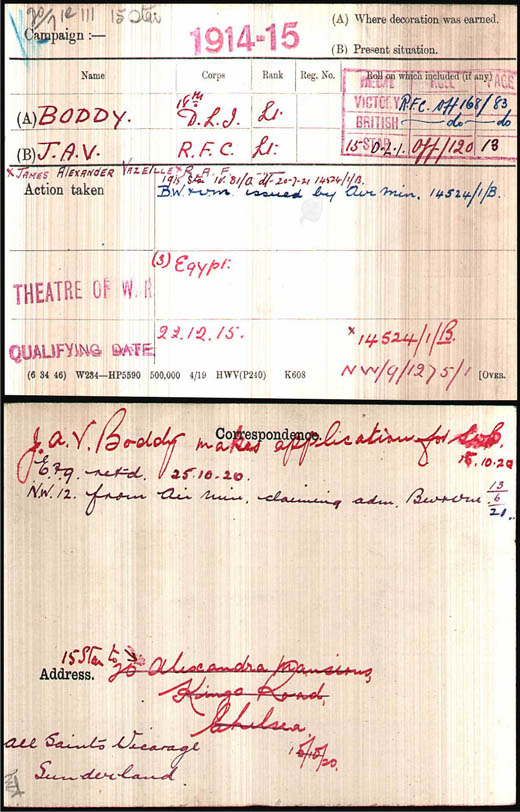 III 15 Star
(A) Where decoration was earned.
Campaign :—
1914-15
(B) Present situation.
Name Corps Rank Reg. No. Roll on which included (if any)
MEDAL ROLL PAGE
(A) BODDY. 18th D.L.I. Lt. VICTORY R.F.C. Off 168/83
BRITISH —do— do
(B) J.A.V. R.F.C. Lt. 15 STAR D.L.I. Off/120 13
x JAMES ALEXANDER VAZEILLE x R.A.F.
Action taken 1915 Star IV. 81/a dt- 20-7-21 14524/1/B.
BW + VM. issued by Air Min. 14524/1/B.
(3) Egypt.
THEATRE OF WAR
22.12.15. x 14524/1/B.
QUALIFYING DATE NW/9/12751
(6 34 46) W234—HP5590 500,000 4/19 HWV(P240) K608 [OVER.
Correspondence.
J.A.V. Boddy makes application for
15.10.20
E.F.9. ret'd. 25.10.20.
N.W.12. from Air Min. claiming adm. BW+VM 13/6/21
15 Star to
Address. 20 Alexandra Mansions,
Kings Road,
Chelsea.
15/10/20.
All Saints Vicarage
Sunderland.